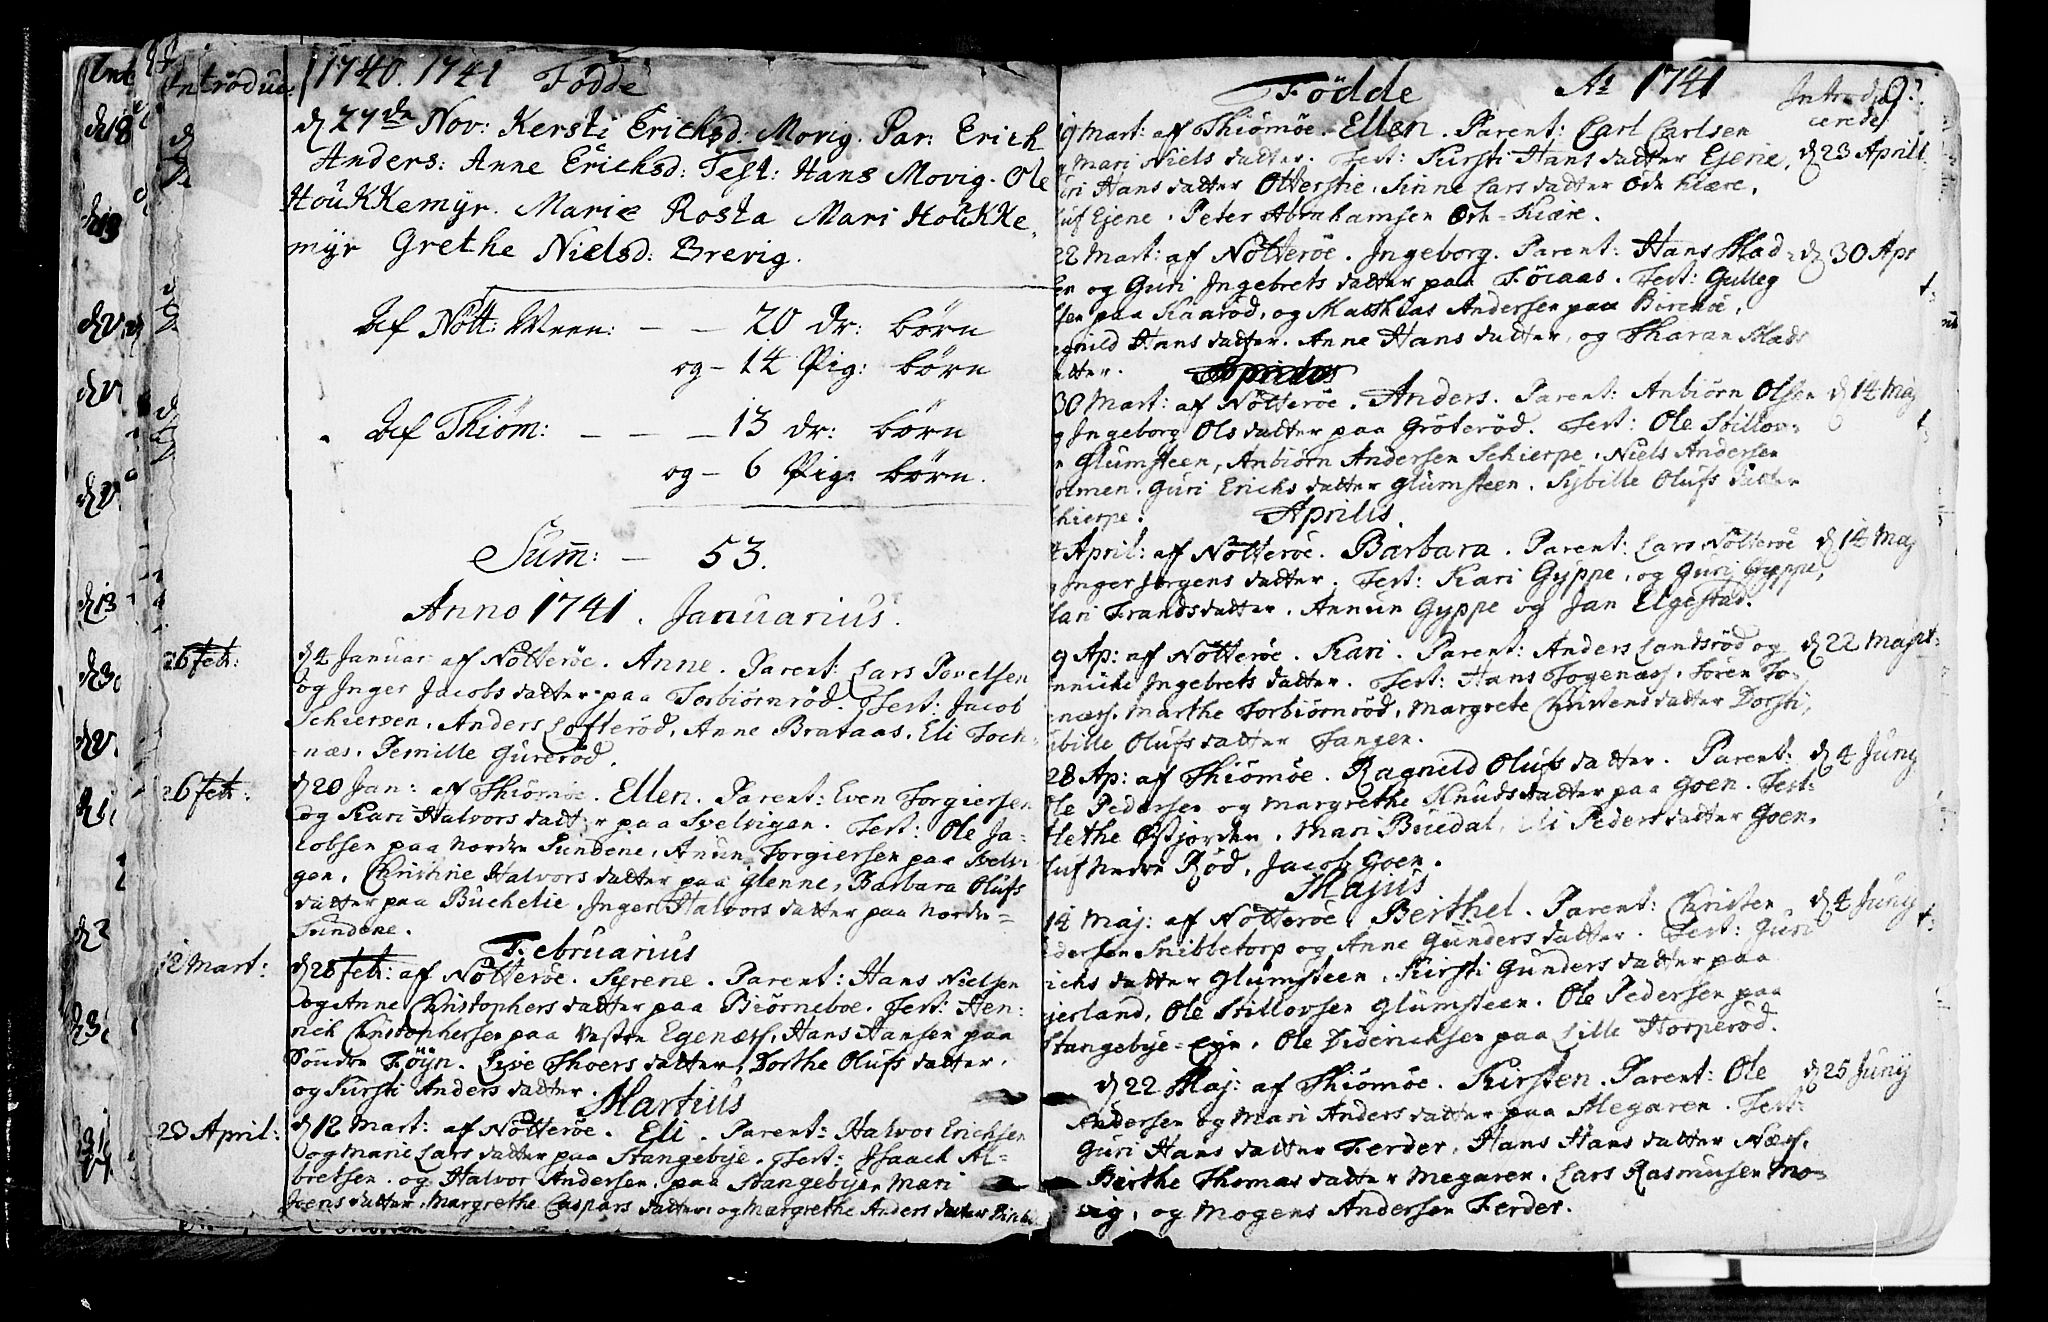 Introduc: 1740. 1741 Födde
d 27de Nov: Kersti Erichsd: Movig. Par: Erich
Anders: Anne Erichsd: Test: Hans Movig. Ole
Houkkemyr. Marie Rosta Mari Houkke
myr Grethe Nielsd: Brevig.
Af Nött: Ween: — — 20 dr: börn
og — 14 Pig: börn
Af Thiöm: — — — 13 dr: börn
og — 6 Pig: börn.
Sum̄: — 53.
Anno 1741. Januarius.
26 feb: d 4 Januar af Nötteröe. Anne. Parent: Lars Povelsen
og Inger Jacobs datter paa Torbiörnröd. Test: Jacob
Schiersen, Anders Lofteröd, Anne Brataas, Eli Foch
næs. Pernille Gureröd.
26 feb: d 20 Jan: af Thiömöe. Ellen. Parent: Even Torgiersen
og Kari Halvors datter paa Svelvigen. Test: Ole Ja-
cobsen paa Nordre Sundene, Anun Torgiersen paa Svelvi
gen, Christine Halvors datter paa Glenne, Barbara Olufs
datter paa Buchelie, Inger Halvors datter paa Nordre
Sundene.
Februarius
12 Mart: d 28 feb: af Nötteröe. Syrene. Parent: Hans Nielsen
og Anne Christophers datter paa Biörneboe. Test: Hen-
rich Christophersen paa Vestre Egenæss, Hans Hansen paa
Söndre Föyn. Live Thoers datter, Dorthe Olufs datter,
og Kirsti Anders datter.
Martius
23 April: d 12 Mart: af Nötteröe. Eli. Parent: Halvor Erichsen
og Marie Lars datter paa Stangebye. Test: Isaach Al-
bretsen og Halvor Andersen paa Stangebye, Mari
Svens datter, Margrethe Caspars datter, og Margrethe Anders datter
Födde Ao 1741 Introdu
cerede
19 Mart: af Thiömöe. Ellen. Parent: Carl Carlsen
Mari Niels datter. Test: Kirsti Hans datter Ejene, d 23 April
Hans datter Otterstie, Sinne Lars datter Öde Kiære,
luf Ejene, Peter Abrahamsen Öde-Kiære.
22 Mart: af Nötteröe. Ingeborg. Parent: Hans Mad- d 30 Apr
sen og Guri Ingebrets datter paa Föcaas. Test: Gulleg
sen paa Kaaröd, og Matthias Andersen paa Böreköe,
Hans datter. Anne Hans datter, og Tharan Mads
datter.
30 Mart: af Nötteröe. Anders. Parent: Anbiörn Olsen d 14 Maj
og Ingeborg Ols datter paa Gröteröd. Test: Ole Stillov-
Glumsteen, Anbiörn Andersen Schierpe, Niels Andersen
Holmen, Guri Erichs datter Glumsteen, Sybille Olufs datter
Schierpe.
Aprilis
April: af Nötteröe. Barbara. Parent: Lars Nötteröe d 14 Maj
Inger Jörgens datter. Test: Kari Gyppe, og Guri Gyppe,
Kari Frands datter, Annun Gyppe og Jan Elgestad.
9 Ap: af Nötteröe. Kari. Parent: Anders Landsröd og d 22 Maj
Ingebrets datter. Test: Hans Fogenæss, Sören Fo-
næss, Marthe Torbiörnröd, Margrete Christens datter Dorsti,
Sibille Olufs datter Tangen.
28 Ap: af Thiömöe. Ragnild Olufs datter. Parent: d 4 Juny
Ole Pedersen og Margrethe Knuds datter paa Goen. Test:
Östjorden, Mari Buedal, Eli Peders datter Goen,
Nedre Röd, Jacob Goen.
Majus
14 Maj: af Nötteröe. Berthel. Parent: Christen d 4 Juny
Pedersen Snibbetorp og Anne Gunders datter. Test: Guri
Erichs datter Glumsteen, Kirsti Gunders datter paa
Ole Stillovsen Glumsteen. Ole Pedersen paa
Stangebye-Eye, Ole Diderichsen paa Lille Torperöd.
d 22 Maj: af Thiömöe. Kirsten. Parent: Ole d 25 Juny
Andersen og Mari Anders datter paa Megaren. Test:
Guri Hans datter Ferder, Hans Hans datter Næss,
Birthe Thomas datter Megaren, Lars Rasmusen Mo-
vig, og Mogens Andersen Ferder.